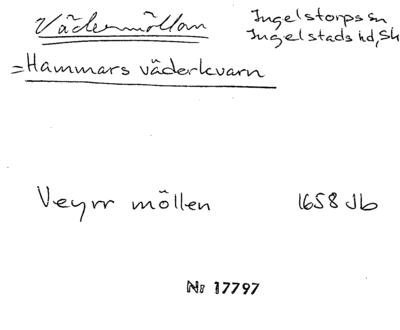 Vädermöllan
Ingelstorps sn
Ingelstads hd, Sk
= Hammars väderkvarn
Veyrr möllen 1658 Jb
Nr 17797